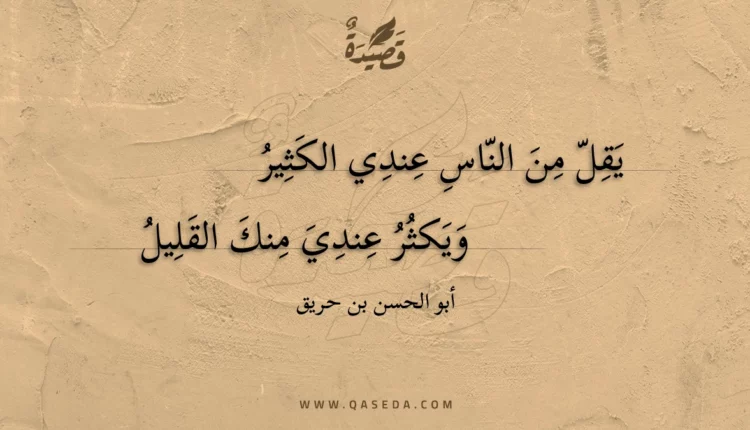 قَصِيدَةٌ
يَقِلّ مِنَ النّاسِ عِندِي الكَثِيرُ
وَيَكثُرُ عِندِيَ مِنكَ القَلِيلُ
أبو الحسن بن حريق
WWW.QASEDA.COM